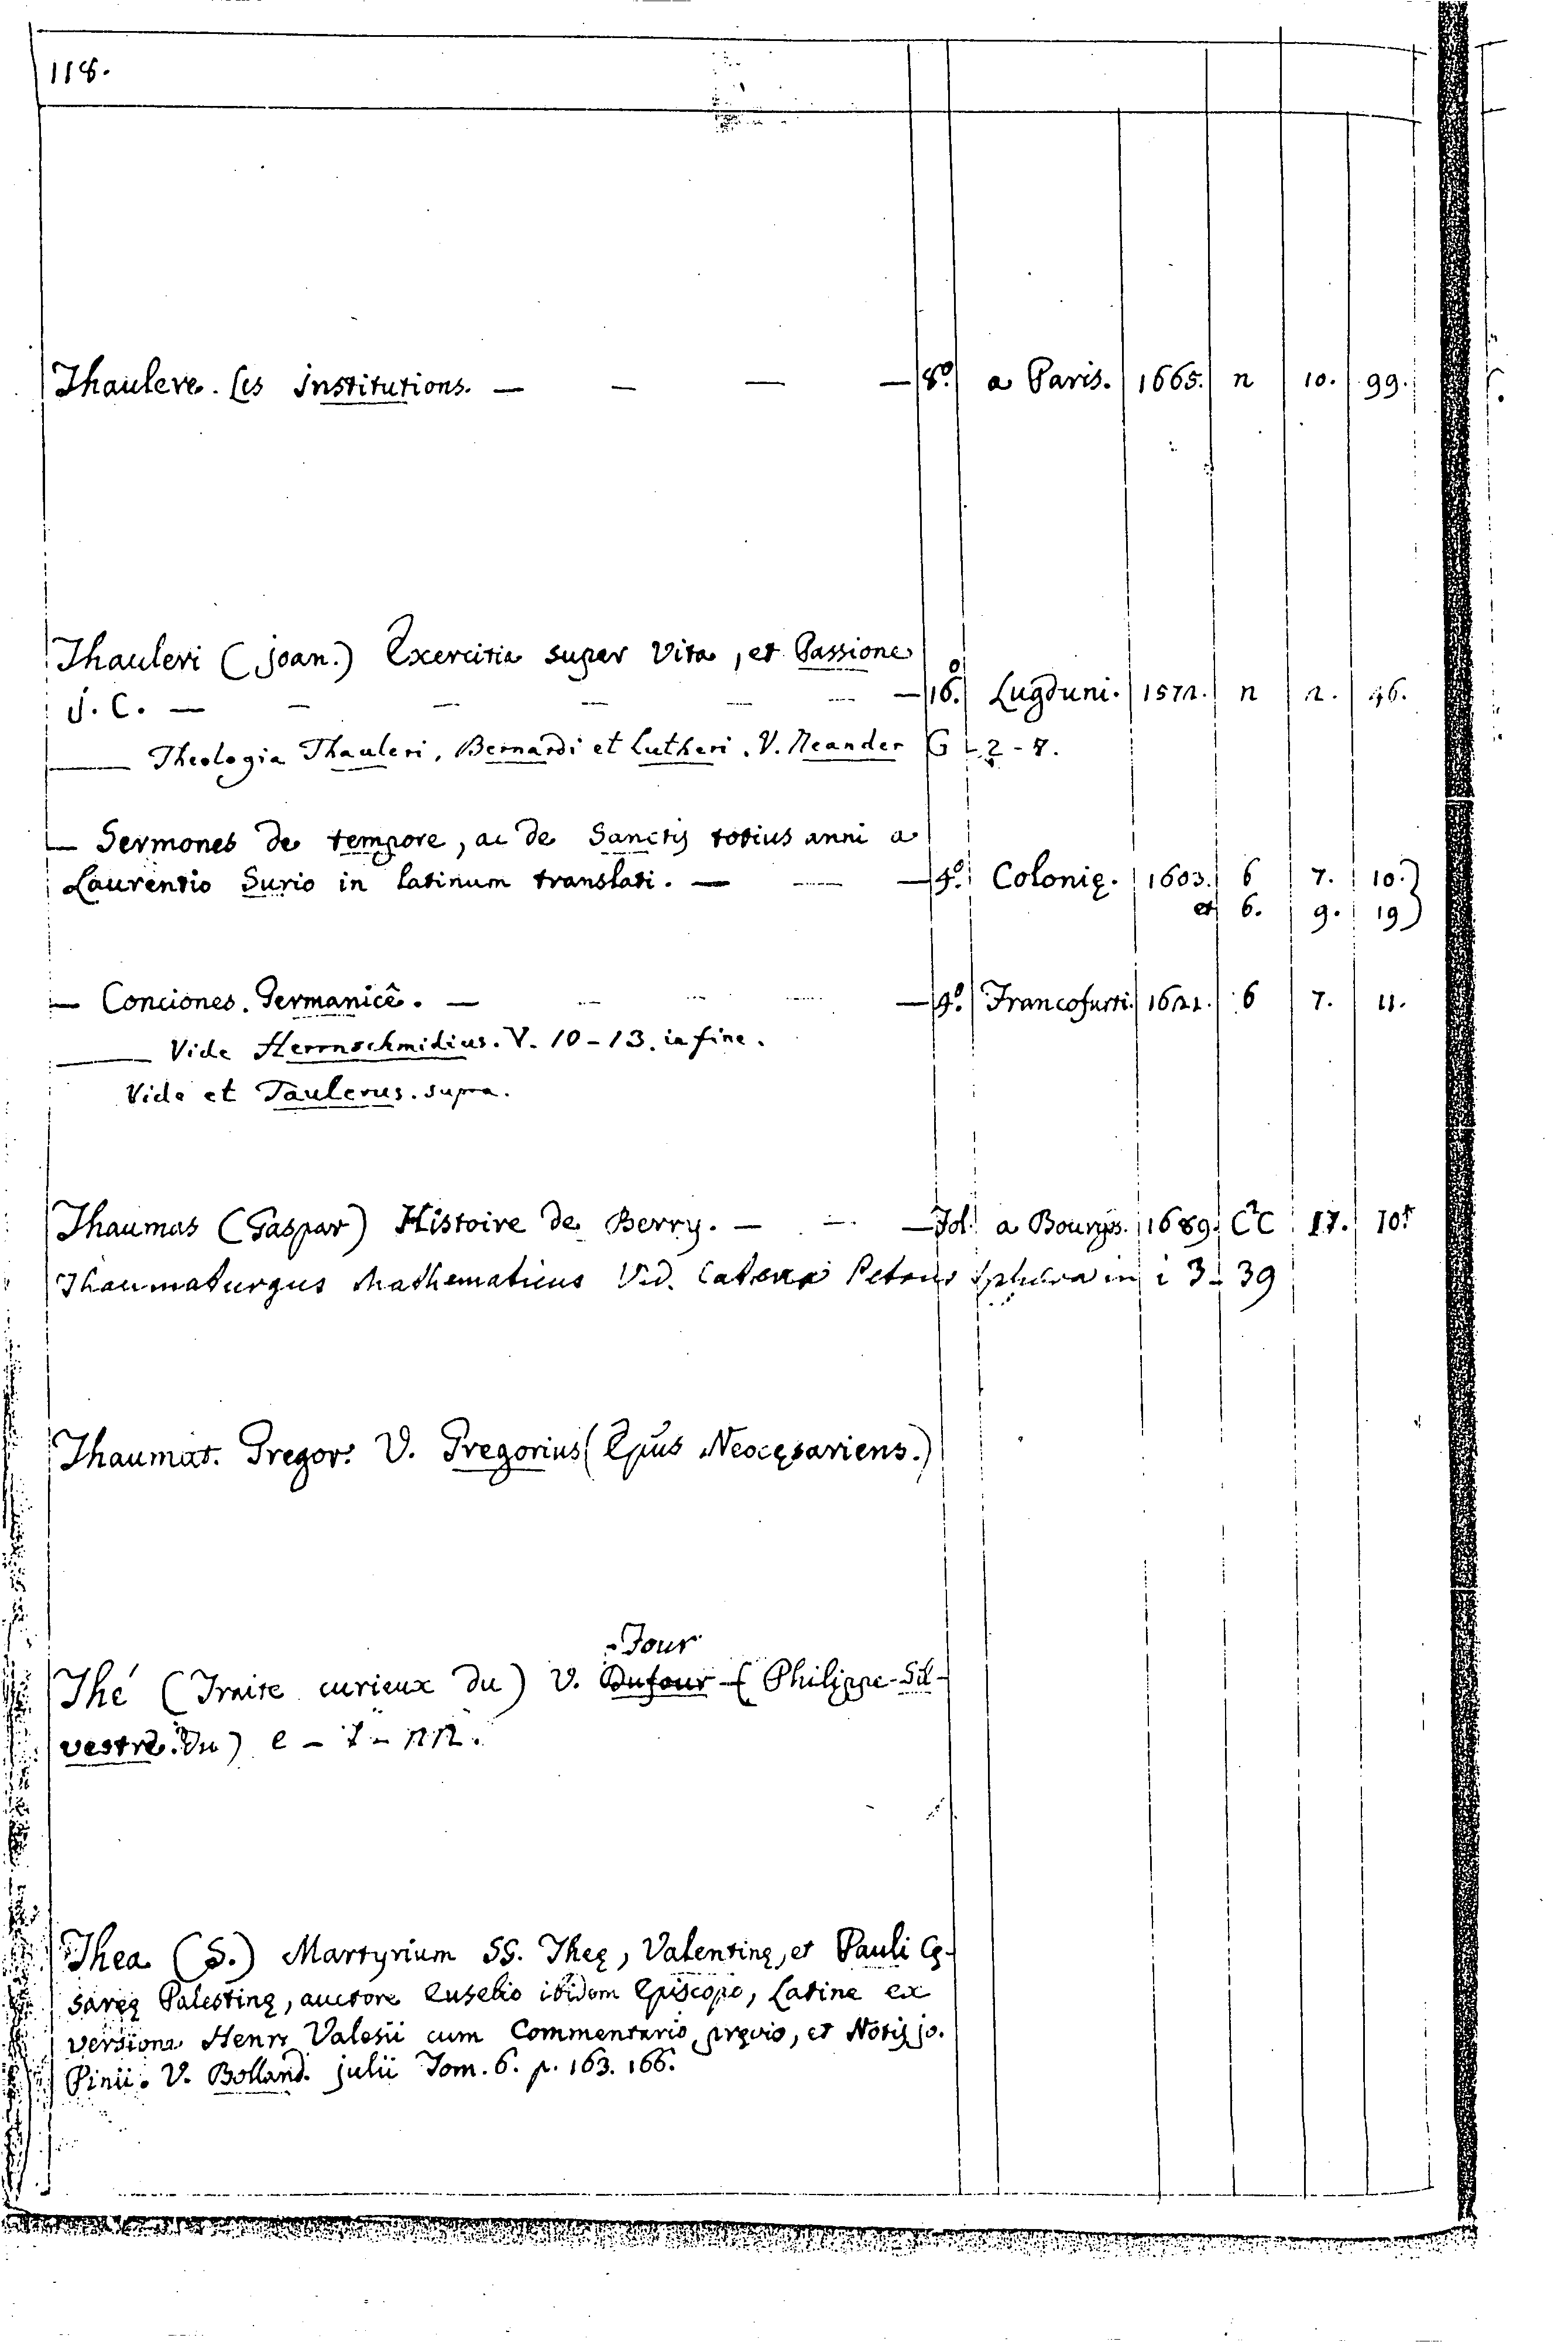 118.
Thaulere. Les institutions. — — — — 8.º a Paris. 1665. n 10. 99.
Thauleri (joan.) Exercitia super Vita, et Passione
J. C. — — — — — — — 16.º Lugduni. 1572. n 2. 46.
—— Theologia Thauleri, Bernardi et Lutheri. V. Neander G - 2 - 8.
— Sermones de tempore, ac de Sanctis totius anni a
Laurentio Surio in latinum translati. — — — 4.º Colonię. 1603. 6 7. 10.)
et 6. 9. 19)
— Conciones. Germanicê. — — — — — 4.º Francofurti. 1621. 6 7. 11.
—— Vide Herrnschmidius. V. 10-13. in fine.
Vide et Taulerus. supra.
Thaumas (Gaspar) Histoire de Berry. — — — Fol. a Bourges. 1689. C²C 17. 10.
Thaumaturgus Mathematicus Vid. Catena Petrus Sphæra in i 3 - 39
Thaumat. Gregor. V. Gregorius (Epus Neocęsariens.)
-Four
Thé (Traite curieux du) V. Dufour (Philippe-Sil-
vestre. Du) e - 7 - 22.
Thea (S.) Martyrium SS. Theę, Valentinę, et Pauli Cę-
saręę Palestinę, auctore Eusebio ibidem Episcopo, Latine ex
versione Henr. Valesii cum Commentario pręvio, et Notis jo.
Pinii. V. Bolland. julii Tom. 6. p. 163. 166.